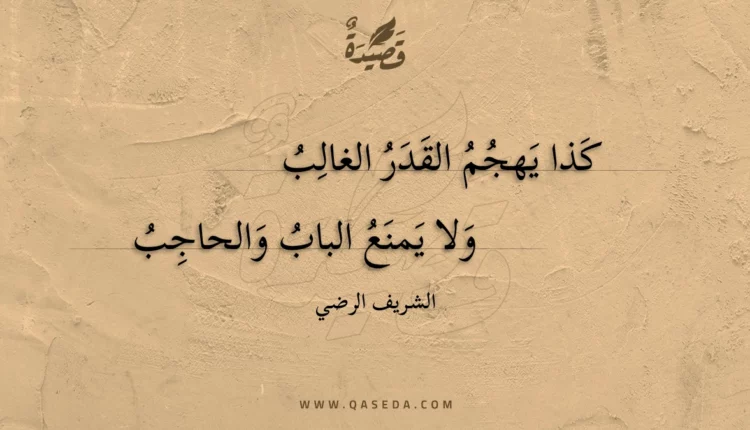 قَصِيدَةٌ
كَذا يَهجُمُ القَدَرُ الغالِبُ
وَلا يَمنَعُ البابُ وَالحاجِبُ
الشريف الرضي
WWW.QASEDA.COM